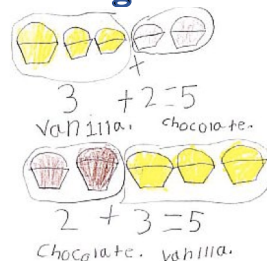 +
3 + 2 = 5
vanilla. chocolate.
2 + 3 = 5
Chocolate. vanilla.